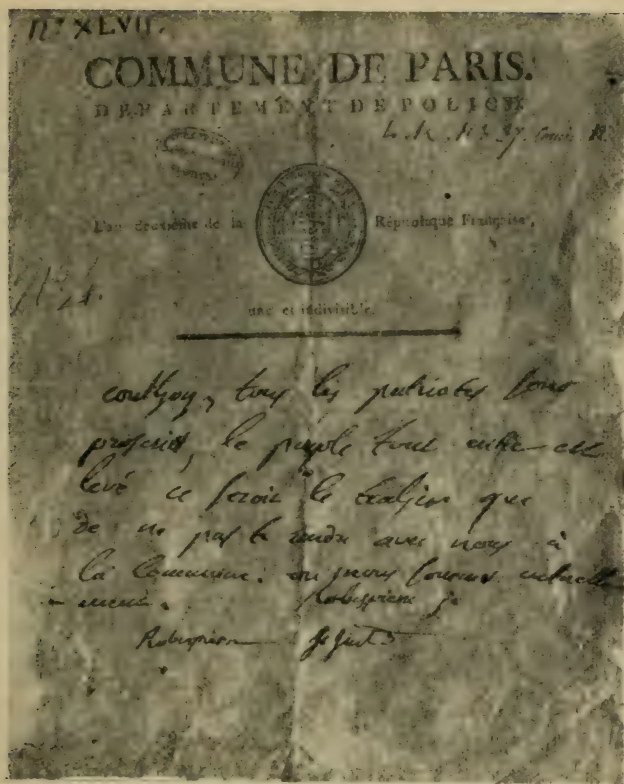 N.º XLVII.
COMMUNE DE PARIS.
DEPARTEMENT DE POLICE
L'an deuxième de la République Française,
une et indivisible.
couthon, tous les patriotes sont
proscrits, le peuple tout entier est
levé ce seroit le trahir que
de ne pas te rendre avec nous à
la Commune. ou nous sommes actuelle-
-ment. Robespierre je
Robespierre St Just